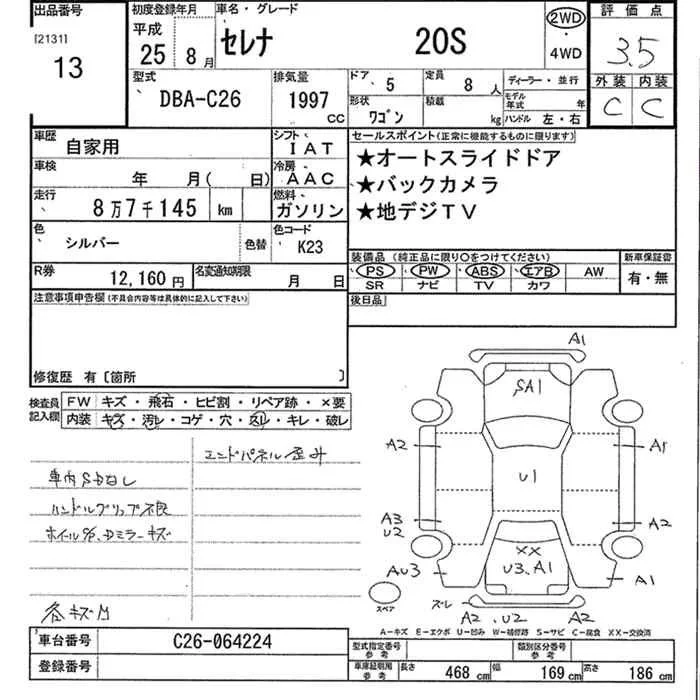 出品番号
[2131]
13
初度登録年月
平成
25 年 8 月
車名・グレード
セレナ 20S
2WD
・
4WD
評価点
3.5
外装 内装
C C
型式
DBA-C26
排気量
1997 CC
ドア 5
定員 8 人
形状 ワゴン
積載 kg
ディーラー・並行
モデル年式 年
ハンドル 左・右
車歴 自家用
シフト IAT
車検 年 月( 日)
冷房 AAC
走行 8万7千145 km
燃料 ガソリン
色 シルバー
色替
色コード K23
R券 12,160 円
名変通知期限 月 日
セールスポイント(正常に機能するものに限ります)
★オートスライドドア
★バックカメラ
★地デジTV
装備品(純正品に限り○をつけてください)
PS PW ABS エアB AW
SR ナビ TV カワ
新車保証書
有・無
後日品
注意事項申告欄(不具合内容等は具体的に記入して下さい)
修復歴 有〔箇所 〕
検査員記入欄
FW キズ・飛石・ヒビ割・リペア跡・×要
内装 キズ・汚レ・コゲ・穴・返レ・キレ・破レ
エンドパネル歪み
車内SDなし
ハンドルグリップ不良
ドミラーキズ
各キズ凹
A1
SA1
A2
A1
U1
A3
U2
A2
XX
U3.A1
AU3
A1
スペア
ズレ
A2.U2
A2
A-キズ E-エクボ U-凹み W-補修跡 S-サビ C-腐食 XX-交換済
車台番号 C26-064224
登録番号
型式指定番号 参考
類別区分番号 参考
車庫証明用 参考
長さ 468 cm
幅 169 cm
高さ 186 cm